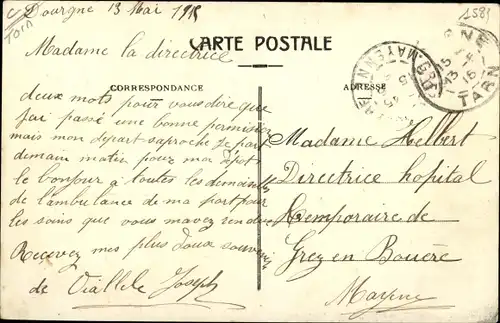 Dourgne 13 Mai 1915
Tarn
1584
Madame la directrice
CARTE POSTALE
CORRESPONDANCE
ADRESSE
deux mots pour vous dire que
jai passé une bonne permision
mais mon depart saproche je part
demain matin pour ma depot
le bonjour a toutes les demoiselles
de l'ambulance de ma part pour
les soins que vous mavez rendue
Recevez mes plus doux souvenir
de Viallele Joseph
Madame Helbert
Directrice hopital
temporaire de
Grez en Bouère
Mayenne
GNE
13 - 5
TARN
MAYENNE